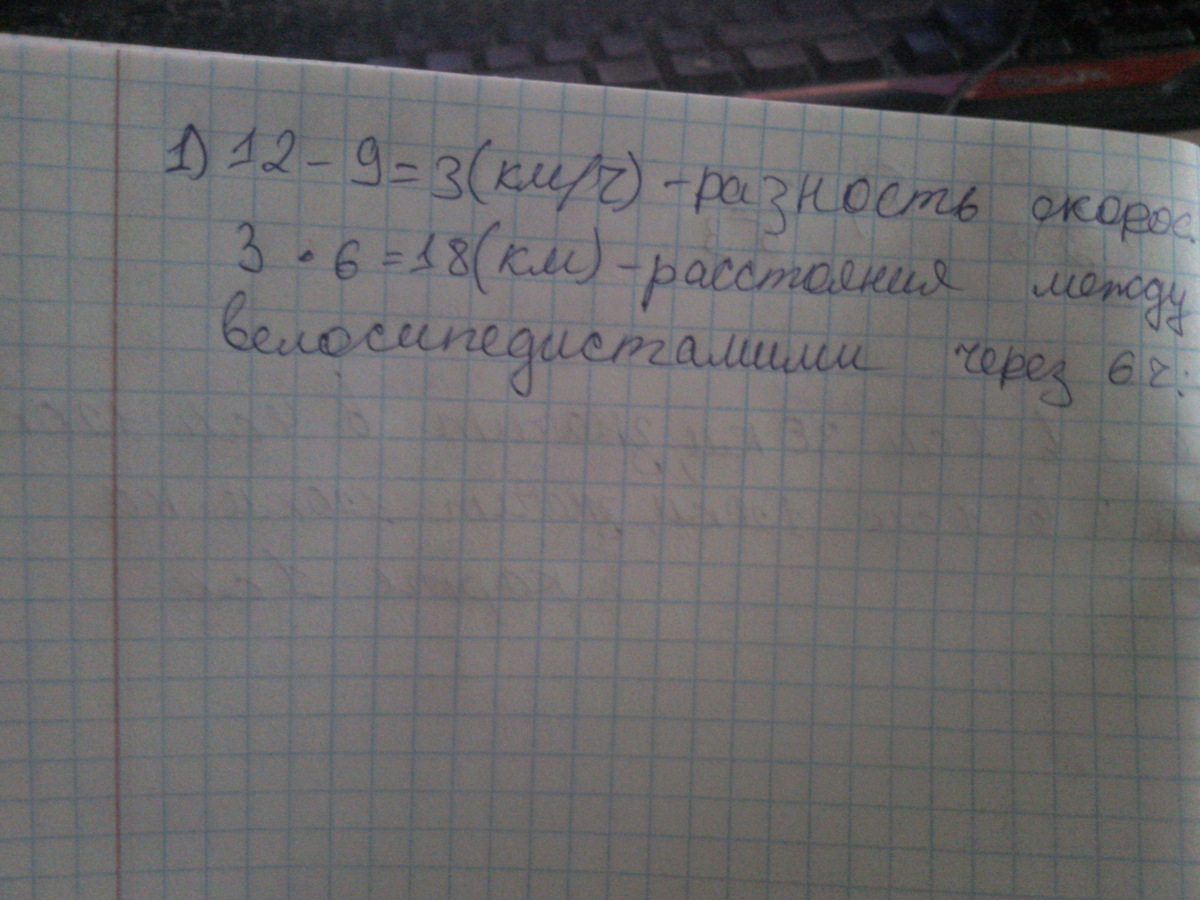 1) 12 - 9 = 3 (км/ч) - разность скорос
3 · 6 = 18 (км) - расстояния между
велосипедистамими через 6 ч.